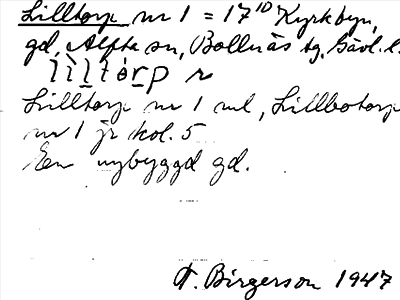 Lilltorp nr 1 = 17ᴰ Kyrkbyn,
gd, Alfta sn, Bollnäs tg, Gävl. l.
lìltòrp n
Lilltorp nr 1 ml, Lillbotorp
nr 1 jr kol. 5
En nybyggd gd.
F. Birgerson 1947